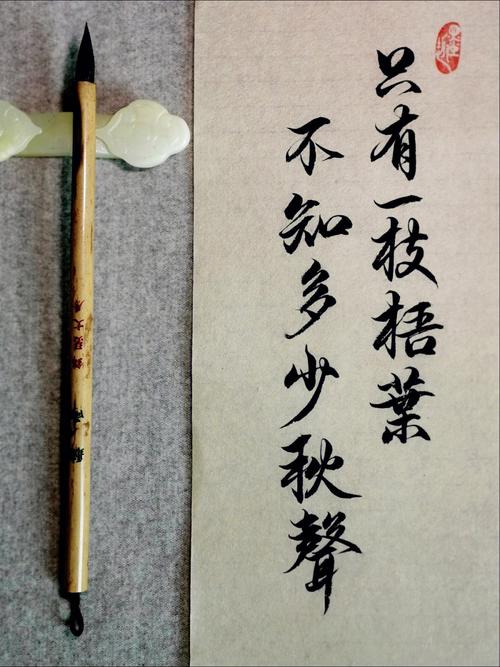 只有一枝梧葉
不知多少秋聲